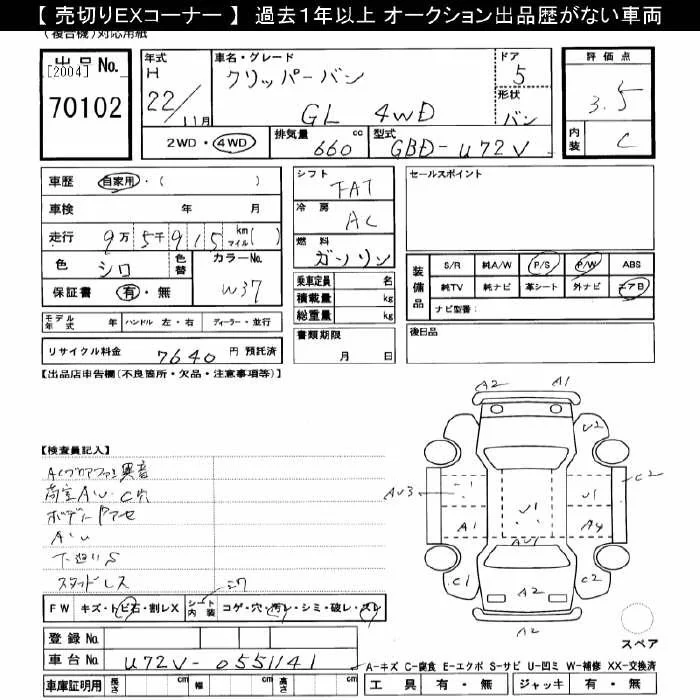 【 売切りEXコーナー 】 過去１年以上 オークション出品歴がない車両
(複合機)対応用紙
出品 No.
[2004]
70102
年式
H
22/11月
車名・グレード
クリッパーバン
GL 4WD
ドア
5
形状
バン
評価点
3.5
内装
C
2WD・4WD
排気量
660 cc
型式
GBD-U72V
車歴 自家用・( )
車検 年 月
走行 9万5千915 km マイル( )
色
シロ
色替
カラーNo.
W37
保証書 有・無
モデル年式 年 ハンドル 左・右 ディーラー・並行
リサイクル料金 7640 円 預託済
シフト
FAT
冷房
AC
燃料
ガソリン
乗車定員 名
積載量 kg
総重量 kg
書類期限
月 日
セールスポイント
装備品
S/R 純A/W P/S P/W ABS
純TV 純ナビ 革シート 外ナビ エアB
ナビ型番:
後日品
【出品店申告欄(不良箇所・欠品・注意事項等)】
【検査員記入】
ACブロアファン異音
荷室AU・C穴
ボデー
AU
下廻りS
スタッドレス
FW キズ・トビ石・割レX
シート内装 コゲ・穴・汚レ・シミ・破レ・スレ
登録No.
車台No. U72V-0551141
車庫証明用 長さ cm 幅 cm 高さ cm
A2 A1
U2
C2
AU3
U1
U1
A1
A4
AU1
C1
A2
C2
A2
スペア
A-キズ C-腐食 E-エクボ S-サビ U-凹ミ W-補修 XX-交換済
工具 有・無 ジャッキ 有・無